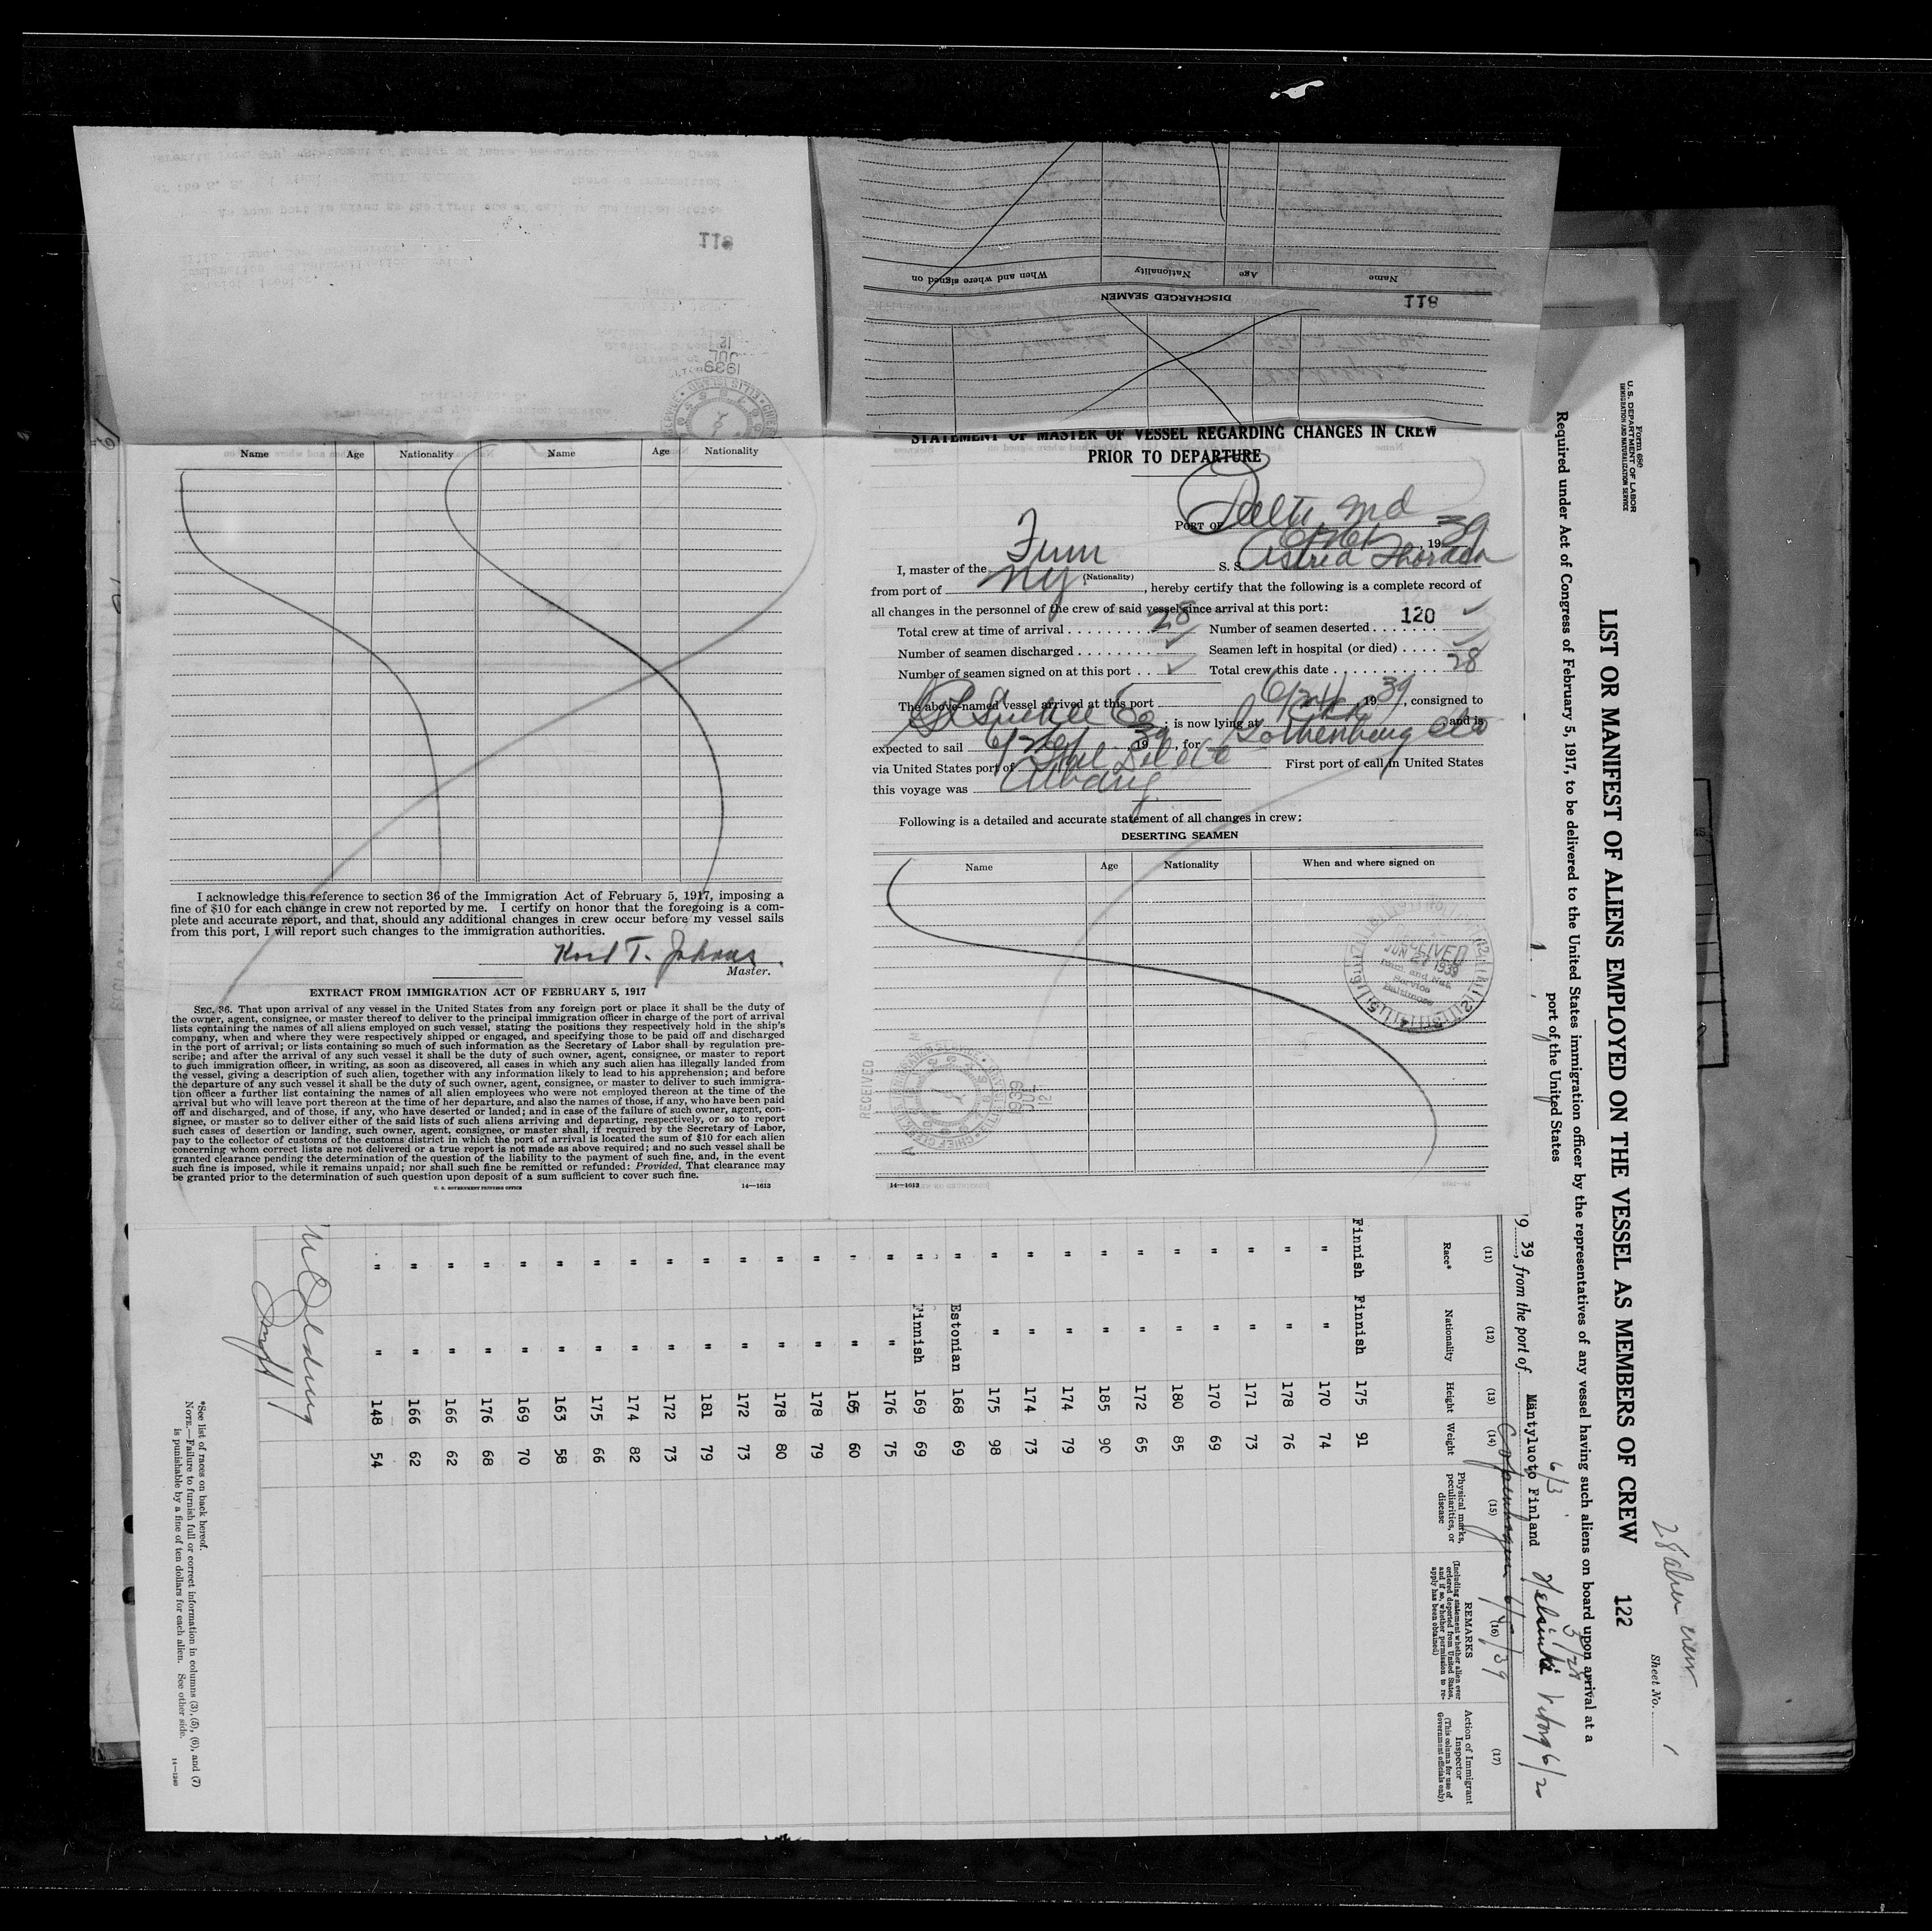 118
1939
JUL
12
118
DISCHARGED SEAMEN
Name Age Nationality When and where signed on
Name Age Nationality Name Age Nationality
I acknowledge this reference to section 36 of the Immigration Act of February 5, 1917, imposing a
fine of $10 for each change in crew not reported by me. I certify on honor that the foregoing is a com-
plete and accurate report, and that, should any additional changes in crew occur before my vessel sails
from this port, I will report such changes to the immigration authorities.
Master.
EXTRACT FROM IMMIGRATION ACT OF FEBRUARY 5, 1917
SEC. 36. That upon arrival of any vessel in the United States from any foreign port or place it shall be the duty of
the owner, agent, consignee, or master thereof to deliver to the principal immigration officer in charge of the port of arrival
lists containing the names of all aliens employed on such vessel, stating the positions they respectively hold in the ship's
company, when and where they were respectively shipped or engaged, and specifying those to be paid off and discharged
in the port of arrival; or lists containing so much of such information as the Secretary of Labor shall by regulation pre-
scribe; and after the arrival of any such vessel it shall be the duty of such owner, agent, consignee, or master to report
to such immigration officer, in writing, as soon as discovered, all cases in which any such alien has illegally landed from
the vessel, giving a description of such alien, together with any information likely to lead to his apprehension; and before
the departure of any such vessel it shall be the duty of such owner, agent, consignee, or master to deliver to such immigra-
tion officer a further list containing the names of all alien employees who were not employed thereon at the time of the
arrival but who will leave port thereon at the time of her departure, and also the names of those, if any, who have been paid
off and discharged, and of those, if any, who have deserted or landed; and in case of the failure of such owner, agent, con-
signee, or master so to deliver either of the said lists of such aliens arriving and departing, respectively, or so to report
such cases of desertion or landing, such owner, agent, consignee, or master shall, if required by the Secretary of Labor,
pay to the collector of customs of the customs district in which the port of arrival is located the sum of $10 for each alien
concerning whom correct lists are not delivered or a true report is not made as above required; and no such vessel shall be
granted clearance pending the determination of the question of the liability to the payment of such fine, and, in the event
such fine is imposed, while it remains unpaid; nor shall such fine be remitted or refunded: Provided, That clearance may
be granted prior to the determination of such question upon deposit of a sum sufficient to cover such fine.
U. S. GOVERNMENT PRINTING OFFICE 14—1613
STATEMENT OF MASTER OF VESSEL REGARDING CHANGES IN CREW
PRIOR TO DEPARTURE
PORT OF Balto, Md
, 1939
I, master of the Finn S. S. Astrid Thorden
(Nationality)
from port of NY, hereby certify that the following is a complete record of
all changes in the personnel of the crew of said vessel since arrival at this port:
120
Total crew at time of arrival 28 Number of seamen deserted
Number of seamen discharged Seamen left in hospital (or died)
Number of seamen signed on at this port Total crew this date 28
The above-named vessel arrived at this port 1939, consigned to
; is now lying at , and is
expected to sail 1939, for Gothenburg
via United States port of First port of call in United States
this voyage was Albany
Following is a detailed and accurate statement of all changes in crew:
DESERTING SEAMEN
Name Age Nationality When and where signed on
RECEIVED
JUN 27 1939
Imm. and Nat.
Service
Baltimore
RECEIVED
1939
JUL
12
14—1613
Form 680
U. S. DEPARTMENT OF LABOR
IMMIGRATION AND NATURALIZATION SERVICE
28 alien crew
Sheet No. 1
LIST OR MANIFEST OF ALIENS EMPLOYED ON THE VESSEL AS MEMBERS OF CREW 122
Required under Act of Congress of February 5, 1917, to be delivered to the United States immigration officer by the representatives of any vessel having such aliens on board upon arrival at a
port of the United States
6/3 5/28
39, from the port of Mäntyluoto Finland Helsinki
Copenhagen
(11) (12) (13) (14) (15) (16) (17)
Race* Nationality Height Weight Physical marks, peculiarities, or disease REMARKS (Including statement whether alien ever ordered deported from United States, and if so, whether permission to re-apply has been obtained) Action of Immigrant Inspector (This column for use of Government officials only)
Finnish Finnish 175 91
" " 170 74
" " 178 76
" " 171 73
" " 170 69
" " 180 85
" " 172 65
" " 185 90
" " 174 79
" " 174 73
" " 175 98
" Estonian 168 69
" Finnish 169 69
" " 176 75
" " 165 60
" " 178 79
" " 178 80
" " 172 73
" " 181 79
" " 172 73
" " 174 82
" " 175 66
" " 163 58
" " 169 70
" " 176 68
" " 166 62
" " 166 62
" " 148 54
*See list of races on back hereof.
NOTE.—Failure to furnish full or correct information in columns (3), (5), (6), and (7)
is punishable by a fine of ten dollars for each alien. See other side.
14—1240